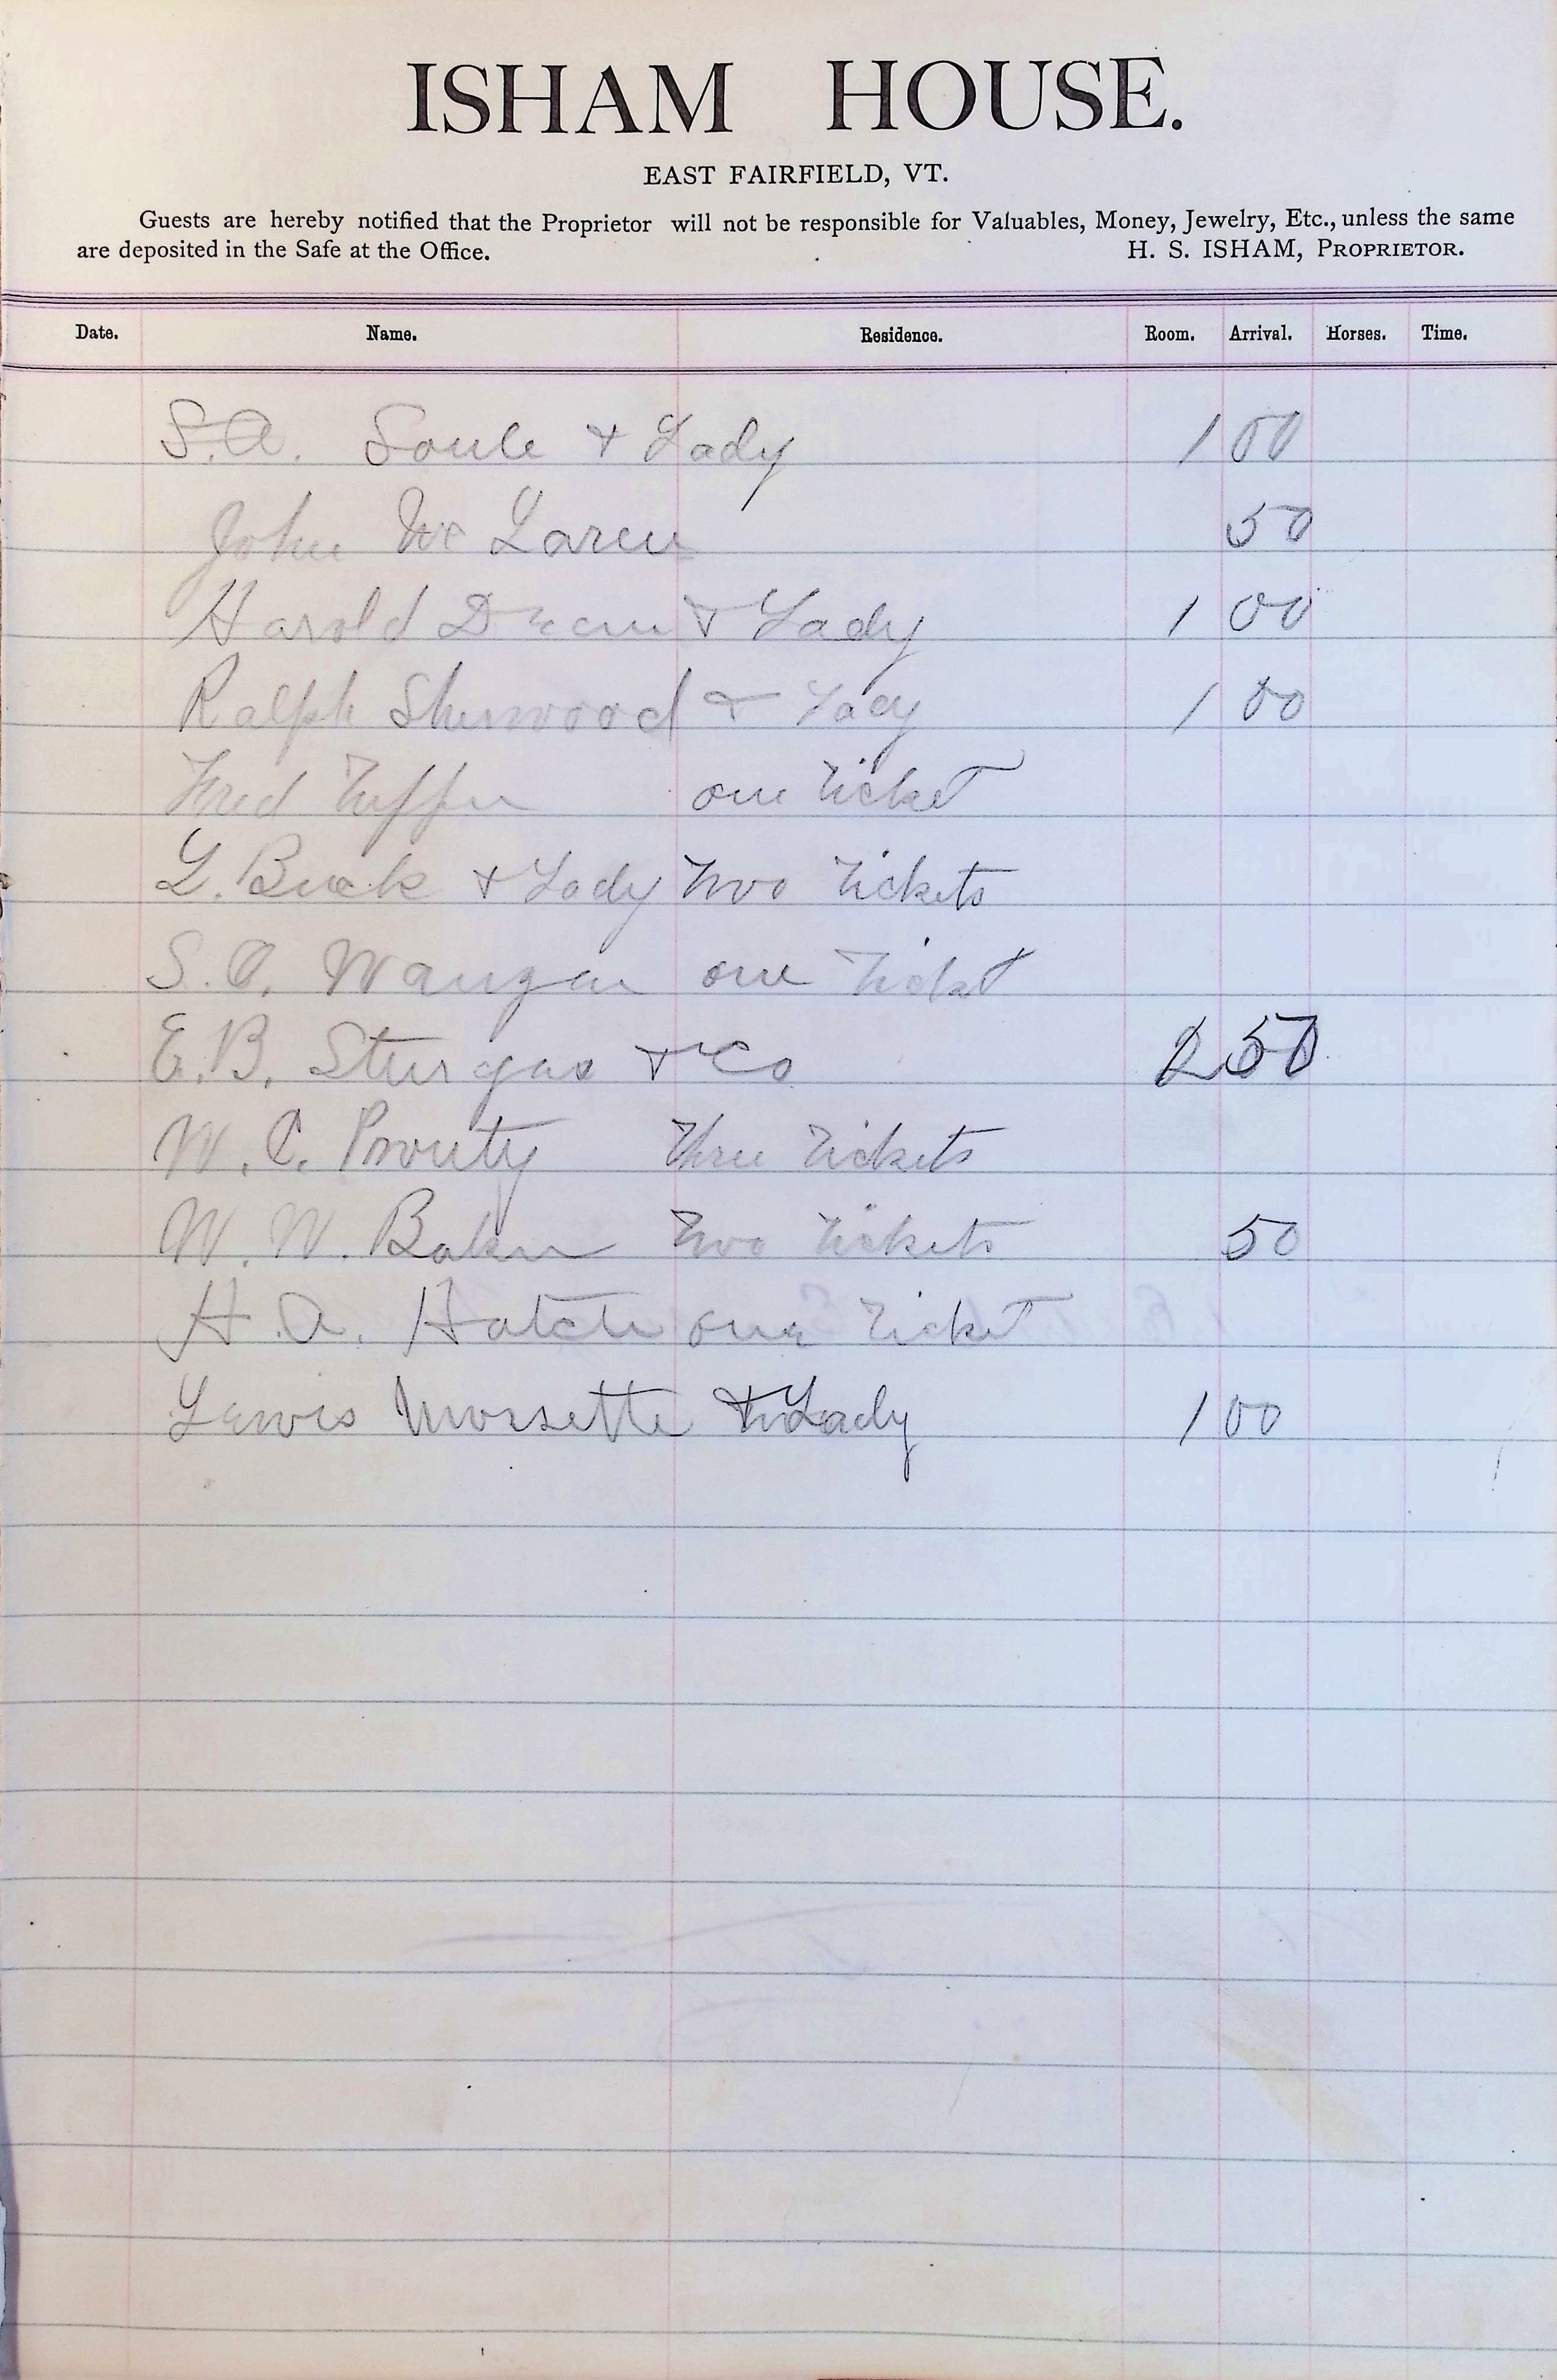 ISHAM HOUSE.
EAST FAIRFIELD, VT.
Guests are hereby notified that the Proprietor will not be responsible for Valuables, Money, Jewelry, Etc., unless the same
are deposited in the Safe at the Office. H. S. ISHAM, PROPRIETOR.
Date. Name. Residence. Room. Arrival. Horses. Time.
S.A. Soule & Lady 1 00
John Mc Laren 50
Harold & Lady 1 00
Ralph Sherwood & Lady 1 00
Fred one Ticket
L. Buck & Lady Two Tickets
S. one Ticket
E.B. Sturgas & Co 2 50
W. C. Prouty Three Tickets
W. W. Baker Two Tickets 50
H. A. Hatch one Ticket
Lewis Morsette & Lady 1 00